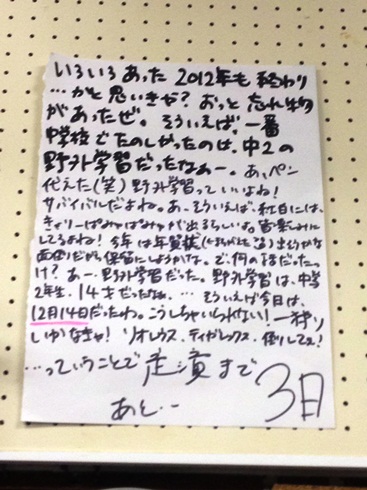 いろいろあった 2012年も終わり
…かと思いきや? おっと忘れ物
があったぜ。そういえば、一番
中学校でたのしかったのは、中2の
野外学習だったなぁー。あ、ペン
代えた(笑)野外学習っていいよね!
サバイバルだよね。あ、そういえば、紅白には、
きゃりーぱみゅぱみゅが出るらしいよ。皆楽しみに
してるよね! 今年は年賀状
面倒だから保留にしようかな。で、何の話だったっ
け? あー、野外学習だった。野外学習は、中学
2年生、14才だったなぁ、… そういえば今日は、
12月14日だったわ。こうしちゃいられない! 一狩り
しいかなきゃ! リオレウス、ティガレックス、倒してぇ!
…っていうことで 走演まで
あと… 3日